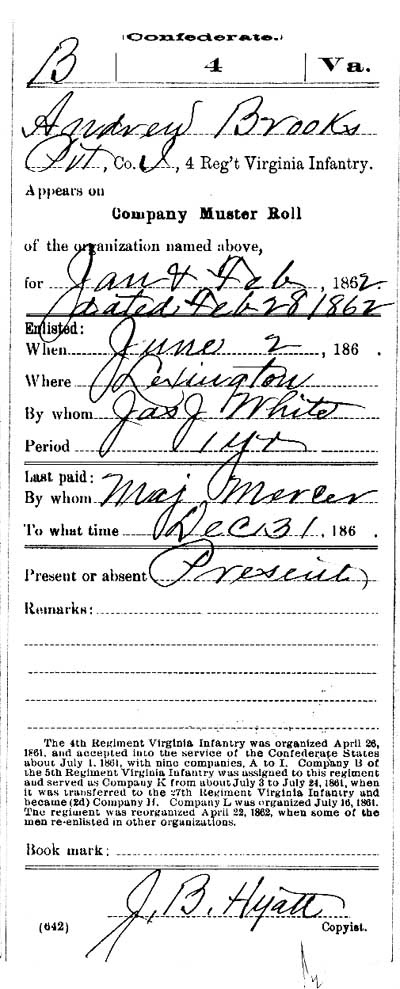 (Confederate.)
B | 4 | Va.
Andrew Brooks
Pvt, Co. I, 4 Reg't Virginia Infantry.
Appears on
Company Muster Roll
of the organization named above,
for Jan & Feb, 1862.
dated Feb 28 1862
Enlisted:
When June 2, 186 .
Where Lexington
By whom Jas J White
Period 1 yr
Last paid:
By whom Maj Mercer
To what time Dec 31, 186 .
Present or absent Present
Remarks:
The 4th Regiment Virginia Infantry was organized April 26,
1861, and accepted into the service of the Confederate States
about July 1, 1861, with nine companies, A to I. Company B of
the 5th Regiment Virginia Infantry was assigned to this regiment
and served as Company K from about July 3 to July 24, 1861, when
it was transferred to the 27th Regiment Virginia Infantry and
became (2d) Company H. Company L was organized July 16, 1861.
The regiment was reorganized April 22, 1862, when some of the
men re-enlisted in other organizations.
Book mark:
J. B. Hyatt
(642) Copyist.